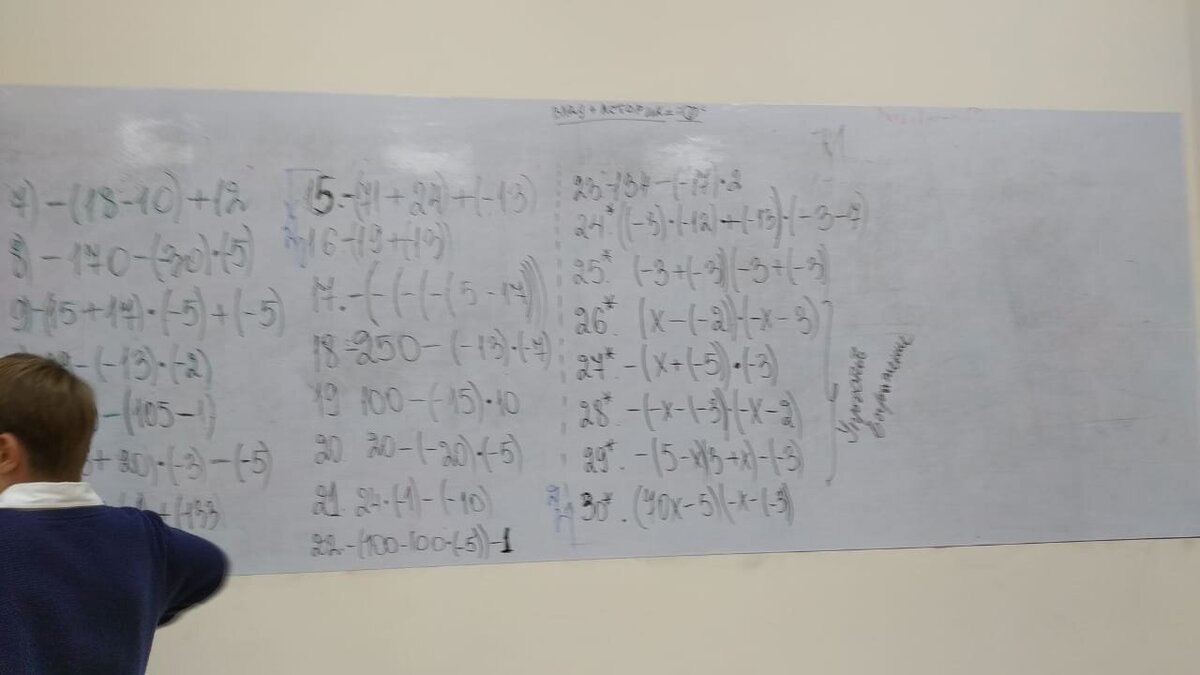 7) -(18-10)+12
8) -170-(30)·(5)
9) -(15+17)·(-5)+(-5)
-(-13)·(-2)
-(105-1)
+20)·(-3)-(-5)
+(133
15.-(71+24)+(-13)
16-(19+(13))
17.-(-(-(-(5-17))))
18-250-(-13)·(-7)
19 100-(-15)·10
20 20-(-20)·(-5)
21. 24·(-1)-(-10)
22-(100-100·(-5))-1
23-137-(-17)·2
24* ((-3)·(-12)+(-13)·(-3-7)
25* (-3+(-3)(-3+(-3)
26* (x-(-2)(-x-3)
27* -(x+(-5))·(-3)
28* -(-x-(-3)(-x-2)
29*. -(5-x)(3+x)-(-3)
30*. (70x-5)(-x-(-3)